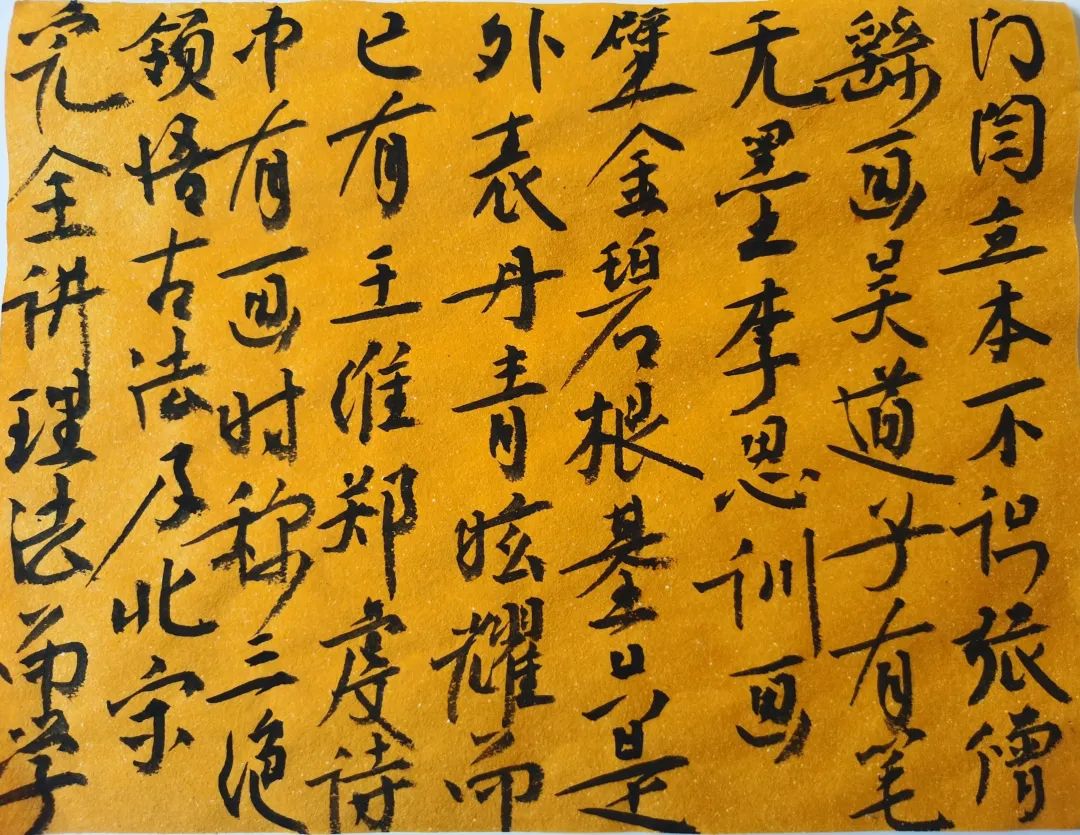 门闫立本不识张僧
繇画吴道子有笔
无墨李思训画
壁金碧根基是
外表丹青眩耀而
已有王维郑虔诗
中有画时称三绝
领悟古法及北宗
完全讲理法而学